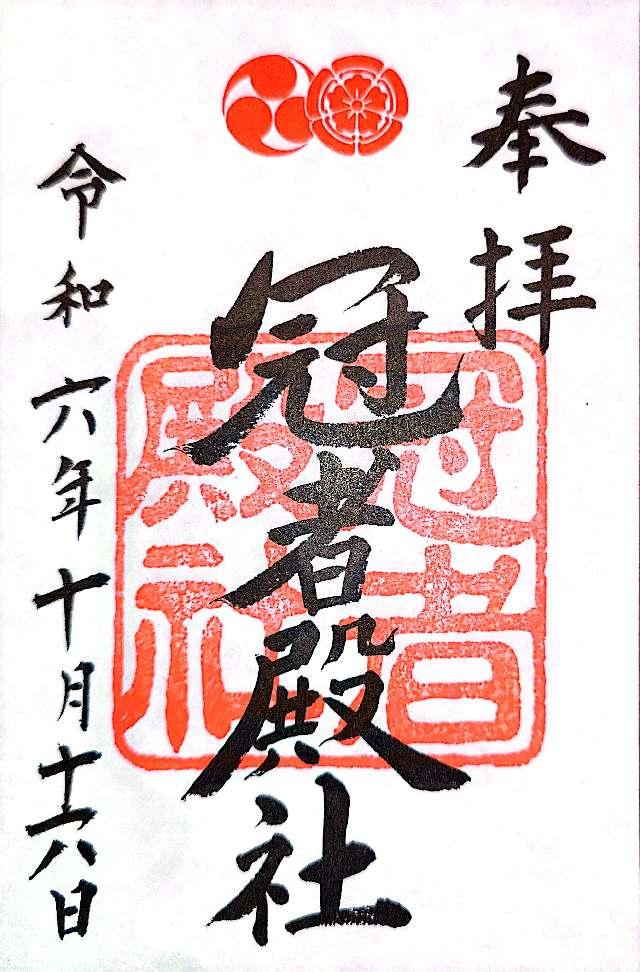 奉拝
冠者殿社
冠者
殿社
令和六年十月十六日